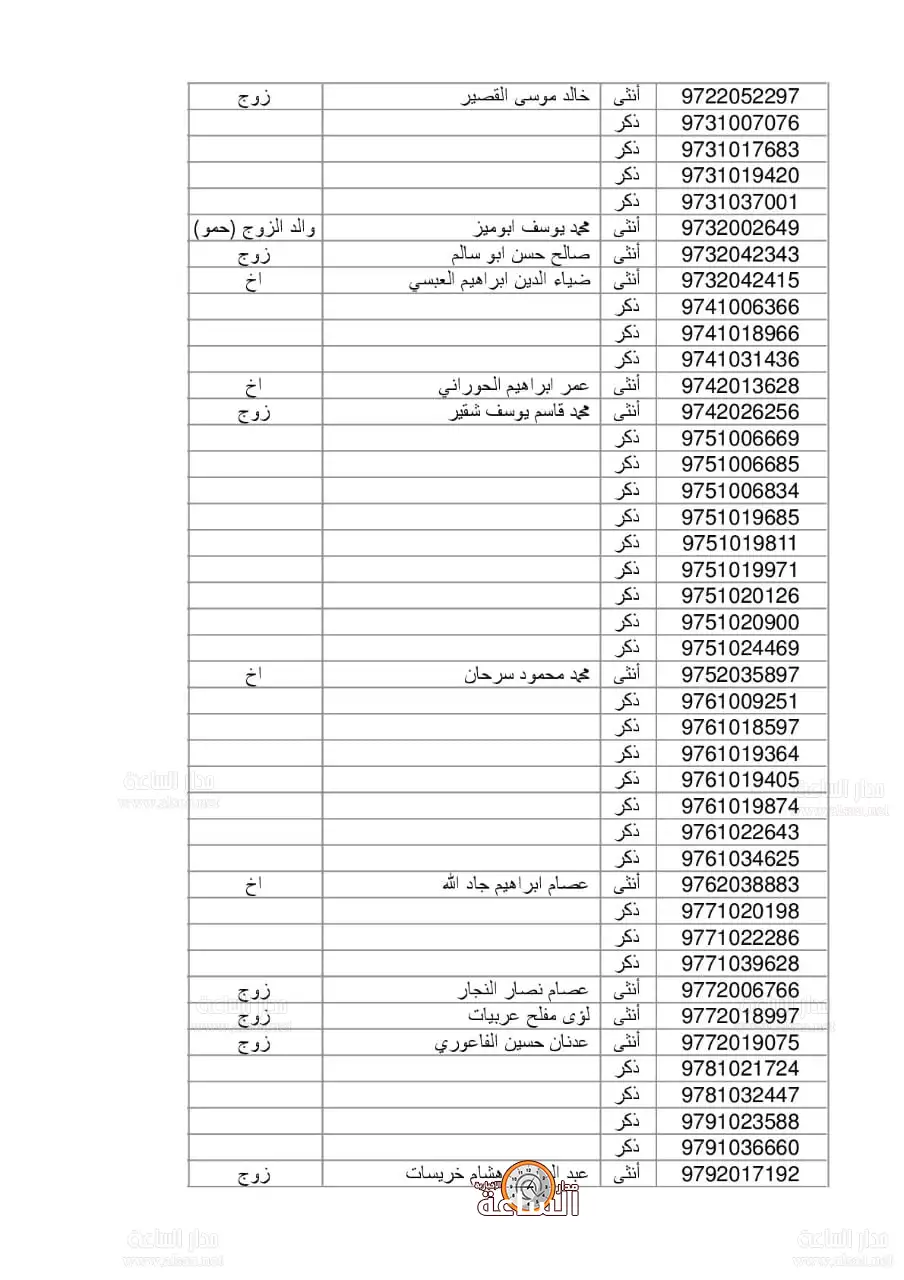 9722052297 أنثى خالد موسى القصير زوج
9731007076 ذكر
9731017683 ذكر
9731019420 ذكر
9731037001 ذكر
9732002649 أنثى محمد يوسف ابوميز والد الزوج (حمو)
9732042343 أنثى صالح حسن ابو سالم زوج
9732042415 أنثى ضياء الدين ابراهيم العبسي اخ
9741006366 ذكر
9741018966 ذكر
9741031436 ذكر
9742013628 أنثى عمر ابراهيم الحوراني اخ
9742026256 أنثى محمد قاسم يوسف شقير زوج
9751006669 ذكر
9751006685 ذكر
9751006834 ذكر
9751019685 ذكر
9751019811 ذكر
9751019971 ذكر
9751020126 ذكر
9751020900 ذكر
9751024469 ذكر
9752035897 أنثى محمد محمود سرحان اخ
9761009251 ذكر
9761018597 ذكر
9761019364 ذكر
9761019405 ذكر
9761019874 ذكر
9761022643 ذكر
9761034625 ذكر
9762038883 أنثى عصام ابراهيم جاد الله اخ
9771020198 ذكر
9771022286 ذكر
9771039628 ذكر
9772006766 أنثى عصام نصار النجار زوج
9772018997 أنثى لؤى مفلح عربيات زوج
9772019075 أنثى عدنان حسين الفاعوري زوج
9781021724 ذكر
9781032447 ذكر
9791023588 ذكر
9791036660 ذكر
9792017192 أنثى عبد هشام خريسات زوج
مدار الساعة الإخبارية
مدار الساعة
www.alsaa.net
مدار الساعة
www.alsaa.net
مدار الساعة
www.alsaa.net
مدار الساعة
www.alsaa.net
مدار الساعة
www.alsaa.net
مدار الساعة
www.alsaa.net